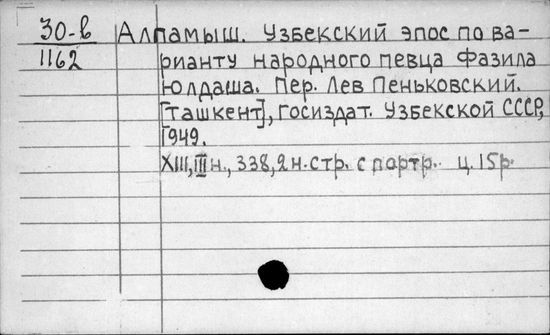 30-б Алпамыш. Узбекский эпос по ва-
1162 рианту народного певца Фазила
Юлдаша. Пер. Лев Пеньковский.
[Ташкент], Госиздат. Узбекской СССР,
1949.
XIII, III н., 338, 2 н. стр. с портр. ц. 15 р.